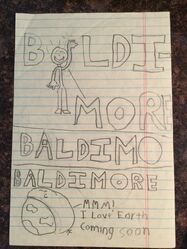 BALDI-
MORE
BALDIMO
BALDIMORE
MMM!
I Love Earth
Coming soon